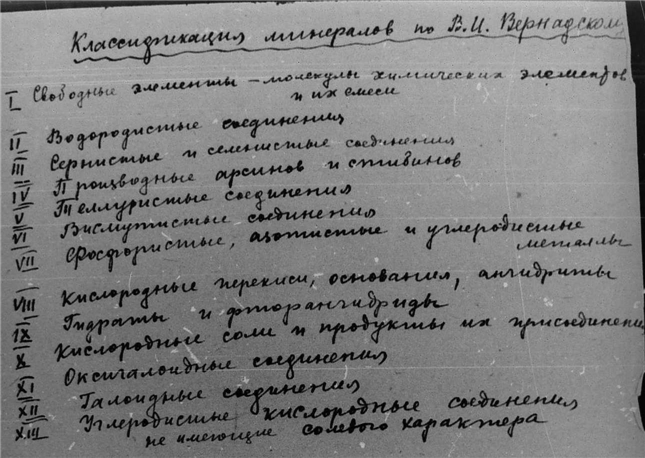 Классификация минералов по В.И. Вернадскому
I Свободные элементы – молекулы химических элементов
и их смеси
II Водородистые соединения
III Сернистые и селенистые соединения
IV Производные арсинов и стибинов
V Теллуристые соединения
VI Висмутистые соединения
VII Фосфористые, азотистые и углеродистые
металлы
VIII Кислородные перекиси, основания, ангидриты
IX Гидраты и фторангидриды
X Кислородные соли и продукты их присоединения
XI Оксигалоидные соединения
XII Галоидные соединения
XIII Углеродистые кислородные соединения
не имеющие солевого характера